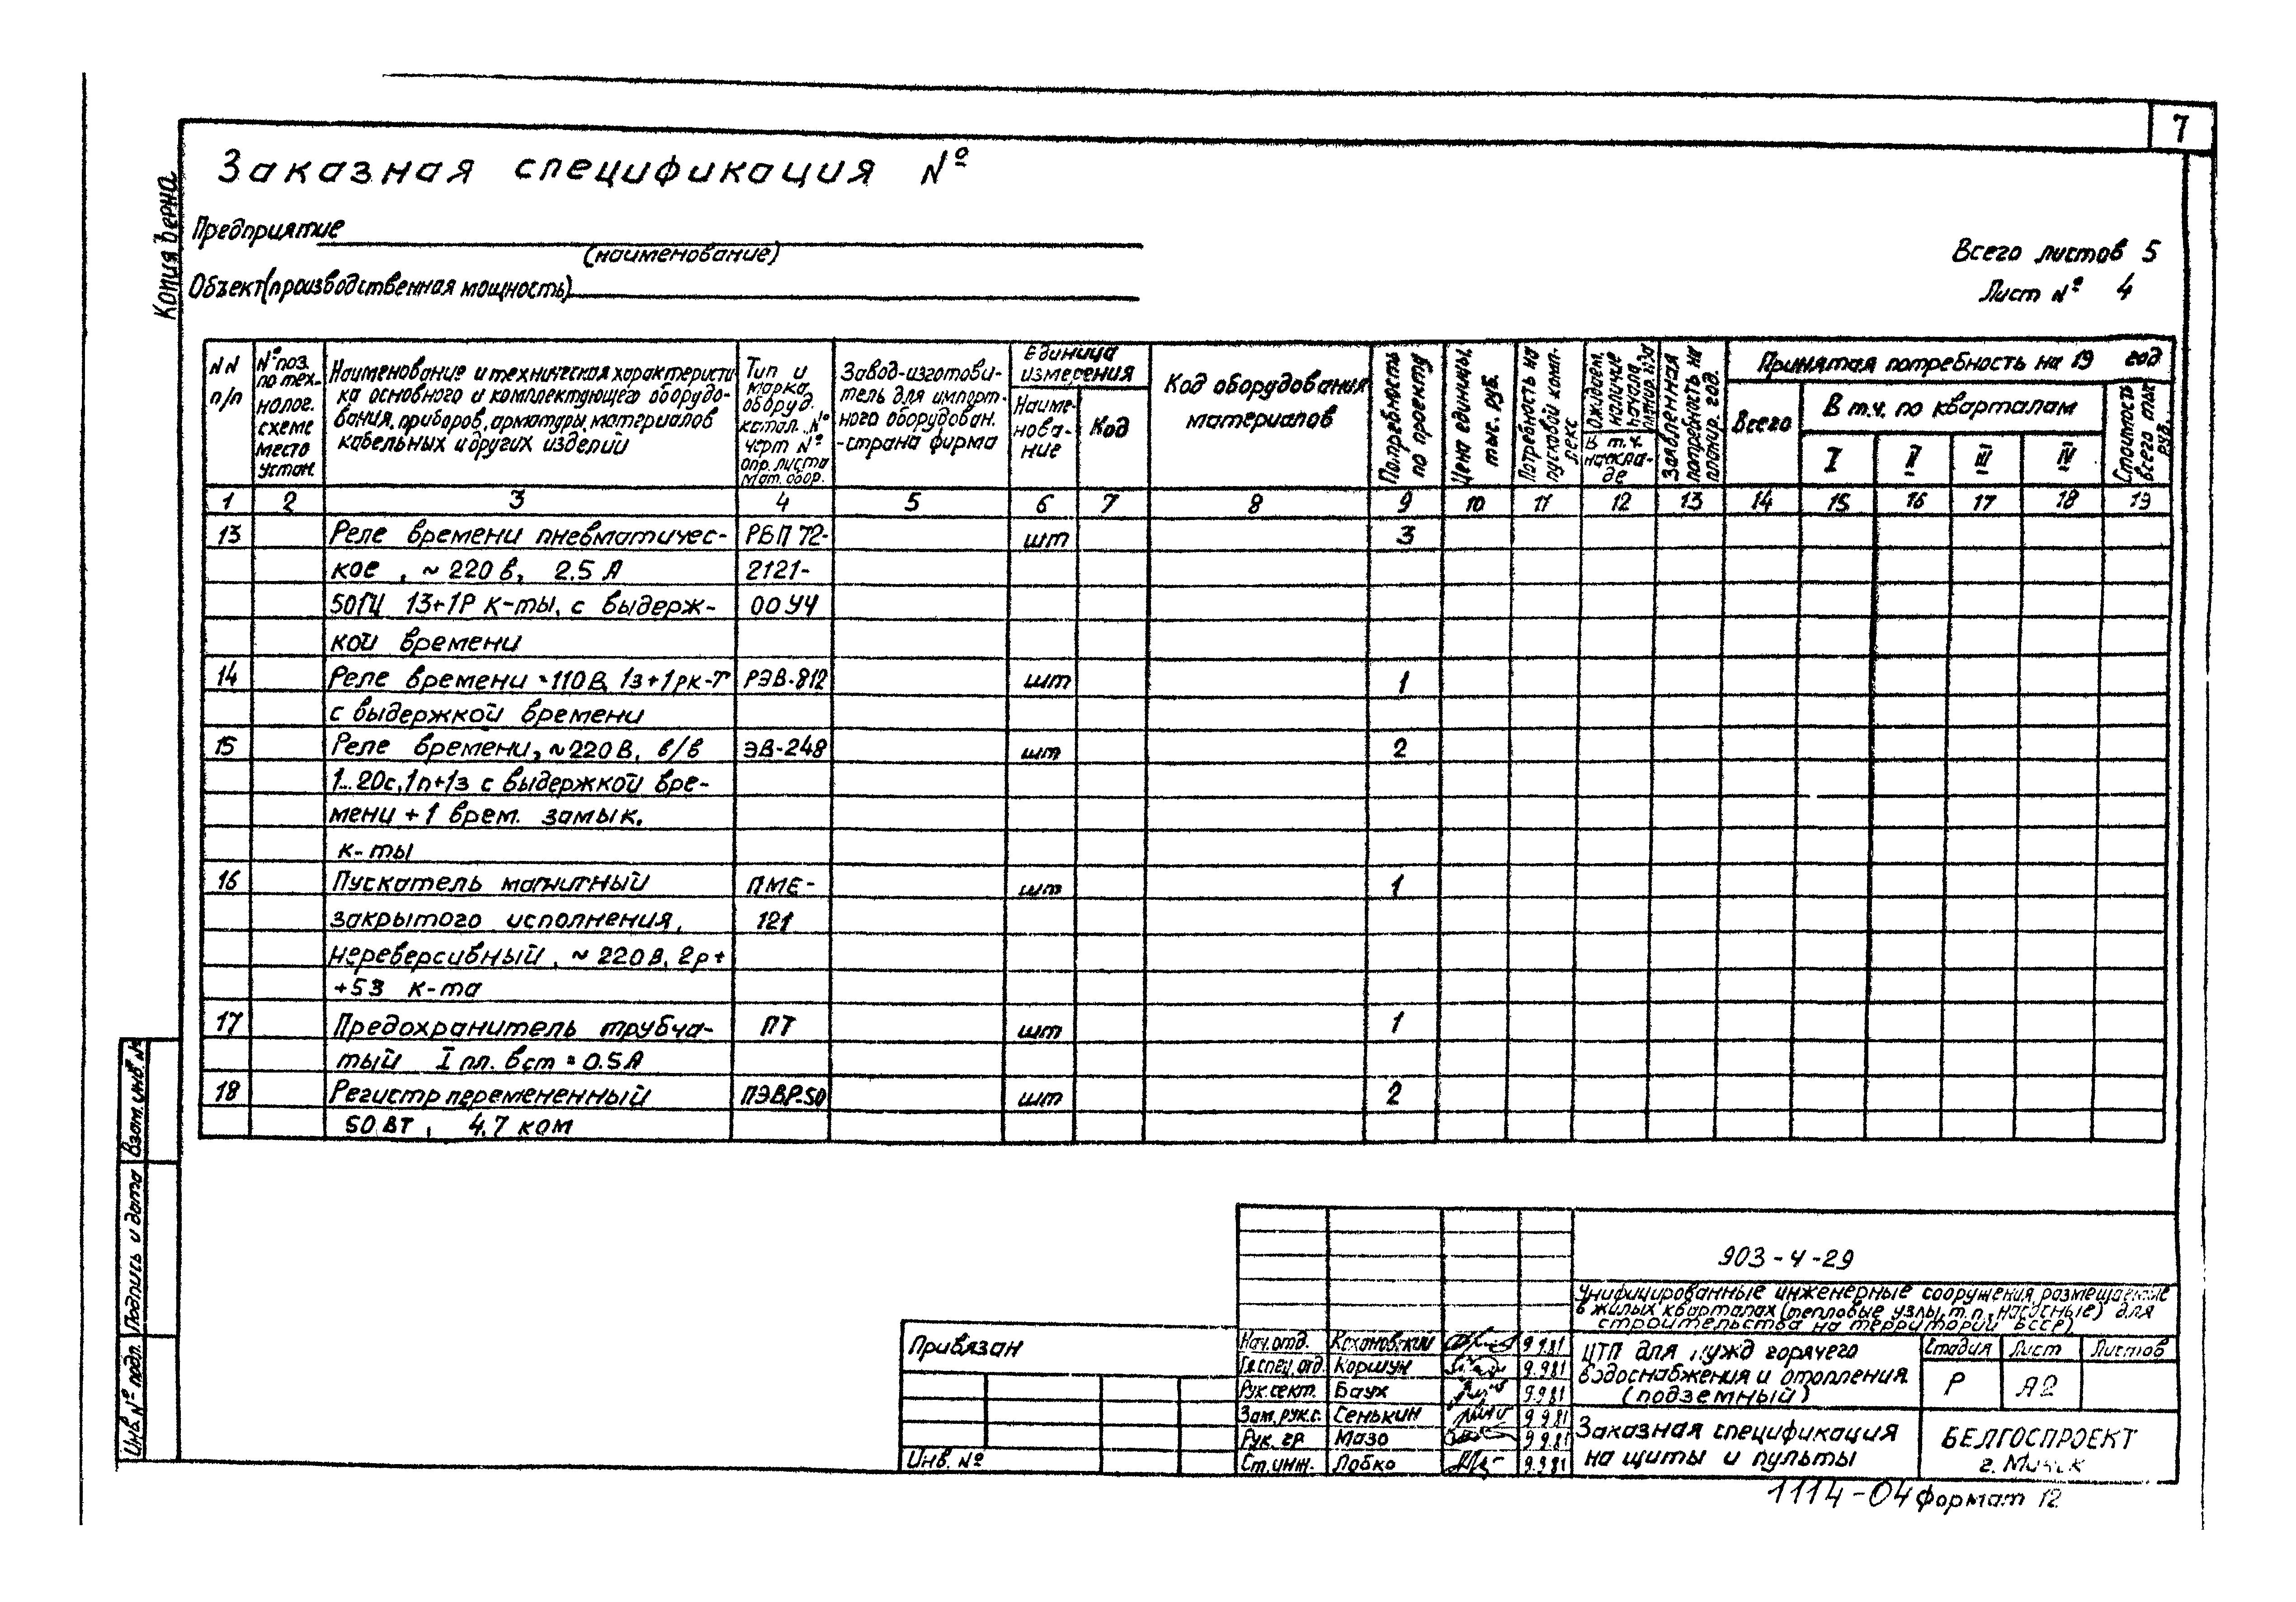 7
Заказная спецификация №
Копия верна
Предприятие
(наименование)
Объект (производственная мощность)
Всего листов 5
Лист № 4
NN п/п
№ поз. по технолог. схеме место устан.
Наименование и техническая характеристи-
ка основного и комплектующего оборудо-
вания, приборов, арматуры, материалов
кабельных и других изделий
Тип и
марка
оборуд.
катал. №
черт №
опр. листа
мат. обор.
Завод-изготови-
тель для импорт-
ного оборудован.
-страна фирма
Единица
измерения
Наиме-
нова-
ние
Код
Код оборудования
материалов
Потребность
по проекту
Цена единицы,
тыс. руб.
Потребность на
пусковой комп-
лекс
Ожидаем.
наличие
начала
В т.ч.
на скла-
де
Заявленная
потребность на
планир. год.
Принятая потребность на 19 год
Всего
В т.ч. по кварталам
I II III IV
Стоимость
всего тыс
руб.
1 2 3 4 5 6 7 8 9 10 11 12 13 14 15 16 17 18 19
13 Реле времени пневматичес- РВП 72- шт 3
кое , ~ 220 в, 2.5 А 2121-
50ГЦ 13+1Р к-ты, с выдерж- 00У4
кой времени
14 Реле времени -110В, 1з+1рк-т РЭВ-812 шт 1
с выдержкой времени
15 Реле времени, ~220В, в/в ЭВ-248 шт 2
1...20с,1п+1з с выдержкой вре-
мени + 1 врем. замык.
к-ты
16 Пускатель магнитный ПМЕ- шт 1
закрытого исполнения, 121
нереверсивный, ~ 220 В, 2р+
+53 к-та
17 Предохранитель трубча- ПТ шт 1
тый I пл. вст = 0.5А
18 Регистр переменный ПЭВР-50 шт 2
50 Вт , 4.7 ком
Взат. инв. №
Подпись и дата
Инв. № подл.
903-4-29
Унифицированные инженерные сооружения, размещаемые
в жилых кварталах (тепловые узлы, т.п., насосные) для
строительства на территории БССР)
Привязан
Инв. №
Нач. отд. Кохановский 9.9.81
Гл.спец. отд Коршун 9.9.81
Рук. сект. Баух 9.9.81
Зам. рук. с. Сенькин 9.9.81
Рук. гр Мазо 9.9.81
Ст. инж. Лобко 9.9.81
ЦТП для нужд горячего
водоснабжения и отопления
(подземный)
Стадия Лист Листов
Р А2
Заказная спецификация
на щиты и пульты
БЕЛГОСПРОЕКТ
г. Минск
1114-04 Формат 12